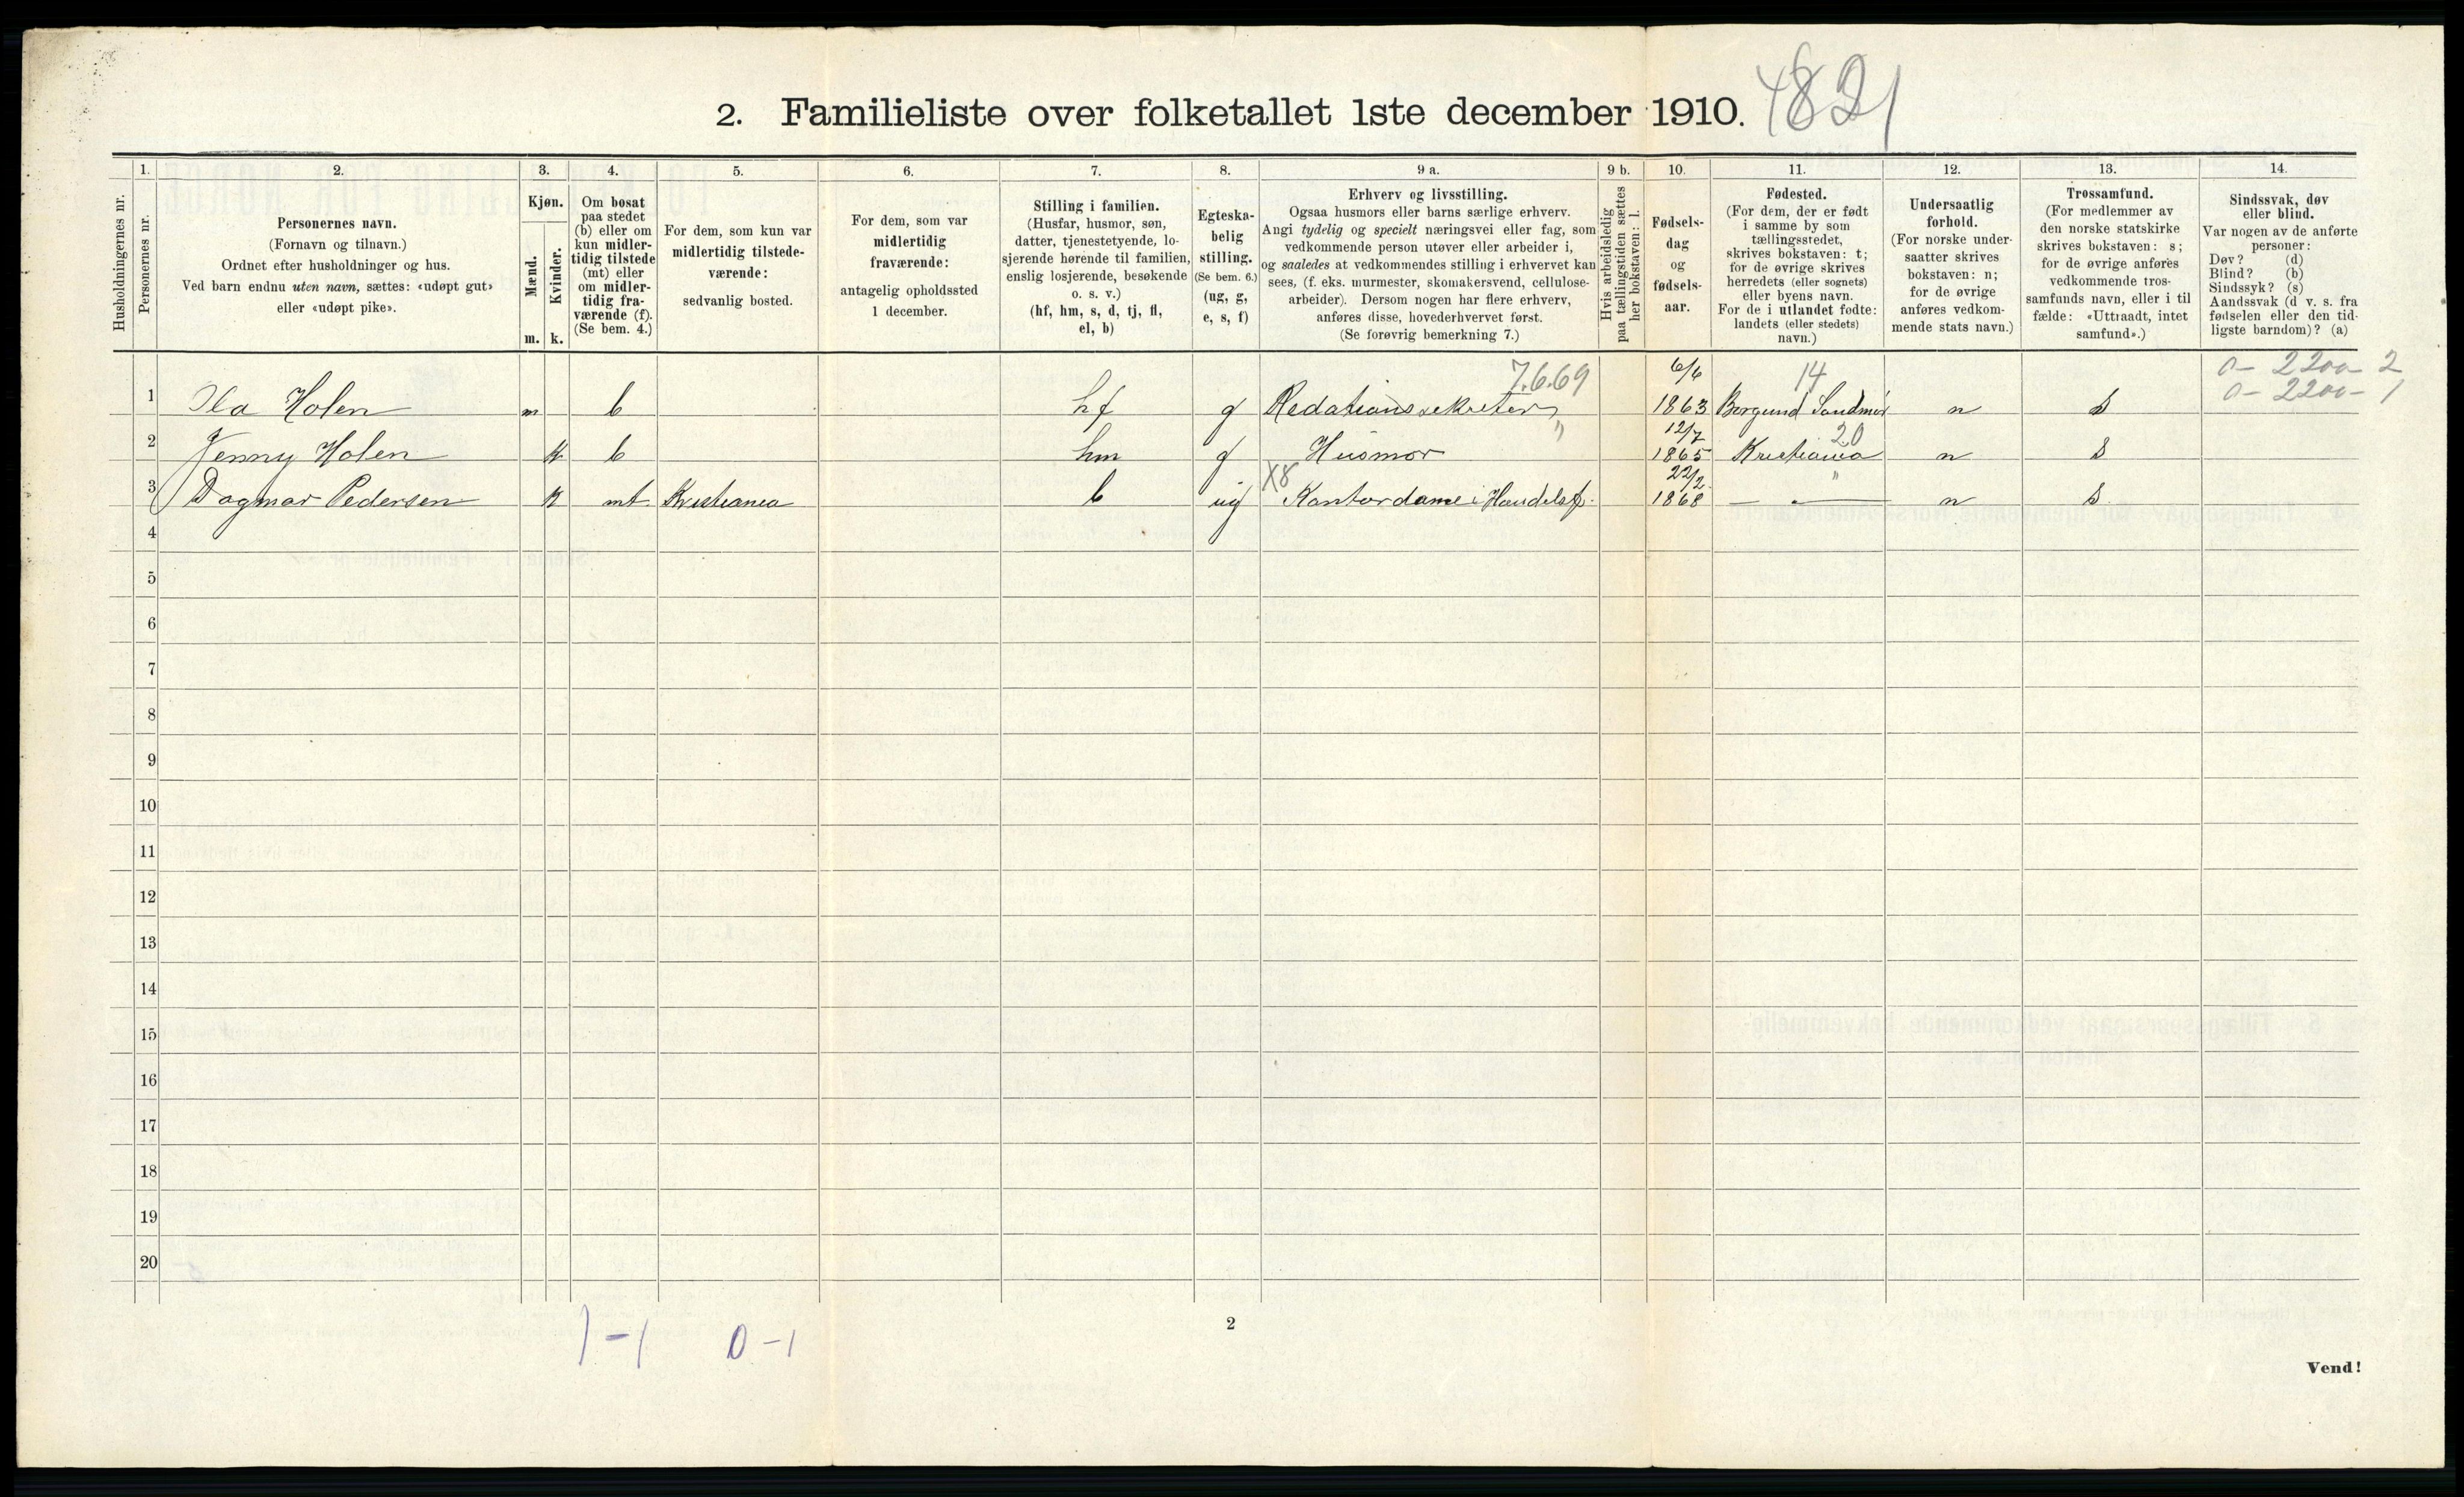 2. Familieliste over folketallet 1ste december 1910.
4821
Husholdningernes nr.
1.
Personernes nr.
2.
Personernes navn.
(Fornavn og tilnavn.)
Ordnet efter husholdninger og hus.
Ved barn endnu uten navn, sættes: «udøpt gut»
eller «udøpt pike».
3.
Kjøn.
Mænd.
Kvinder.
m. k.
4.
Om bosat
paa stedet
(b) eller om
kun midler-
tidig tilstede
(mt) eller
om midler-
tidig fra-
værende (f).
(Se bem. 4.)
5.
For dem, som kun var
midlertidig tilstede-
værende:
sedvanlig bosted.
6.
For dem, som var
midlertidig
fraværende:
antagelig opholdssted
1 december.
7.
Stilling i familien.
(Husfar, husmor, søn,
datter, tjenestetyende, lo-
sjerende hørende til familien,
enslig losjerende, besøkende
o. s. v.)
(hf, hm, s, d, tj, fl,
el, b)
8.
Egteska-
belig
stilling.
(Se bem. 6.)
(ug, g,
e, s, f)
9 a.
Erhverv og livsstilling.
Ogsaa husmors eller barns særlige erhverv.
Angi tydelig og specielt næringsvei eller fag, som
vedkommende person utøver eller arbeider i,
og saaledes at vedkommendes stilling i erhvervet kan
sees, (f. eks. murmester, skomakersvend, cellulose-
arbeider). Dersom nogen har flere erhverv,
anføres disse, hovederhvervet først.
(Se forøvrig bemerkning 7.)
9 b.
Hvis arbeidsledig
paa tællingstiden sættes
her bokstaven: l.
10.
Fødsels-
dag
og
fødsels-
aar.
11.
Fødested.
(For dem, der er født
i samme by som
tællingsstedet,
skrives bokstaven: t;
for de øvrige skrives
herredets (eller sognets)
eller byens navn.
For de i utlandet fødte:
landets (eller stedets)
navn.)
12.
Undersaatlig
forhold.
(For norske under-
saatter skrives
bokstaven: n;
for de øvrige
anføres vedkom-
mende stats navn.)
13.
Trossamfund.
(For medlemmer av
den norske statskirke
skrives bokstaven: s;
for de øvrige anføres
vedkommende tros-
samfunds navn, eller i til
fælde: «Uttraadt, intet
samfund».)
14.
Sindssvak, døv
eller blind.
Var nogen av de anførte
personer:
Døv? (d)
Blind? (b)
Sindssyk? (s)
Aandssvak (d v. s. fra
fødselen eller den tid-
ligste barndom)? (a)
7.6.69 6/6 14 0 - 2200 - 2
1 Ola Holen m b hf g Redationssekretær 1863 Borgund Søndmør n s 0 - 2200 - 1
" 12/7 20
2 Jenny Holen k b hm g Husmor 1865 Kristiania n s
X8 22/2 "
3 Dagmar Pedersen k mt Kristiania b ug Kontordame i Handelsf. 1868 — " — n s
4
5
6
7
8
9
10
11
12
13
14
15
16
17
18
19
20
1-1 0-1
2
Vend!